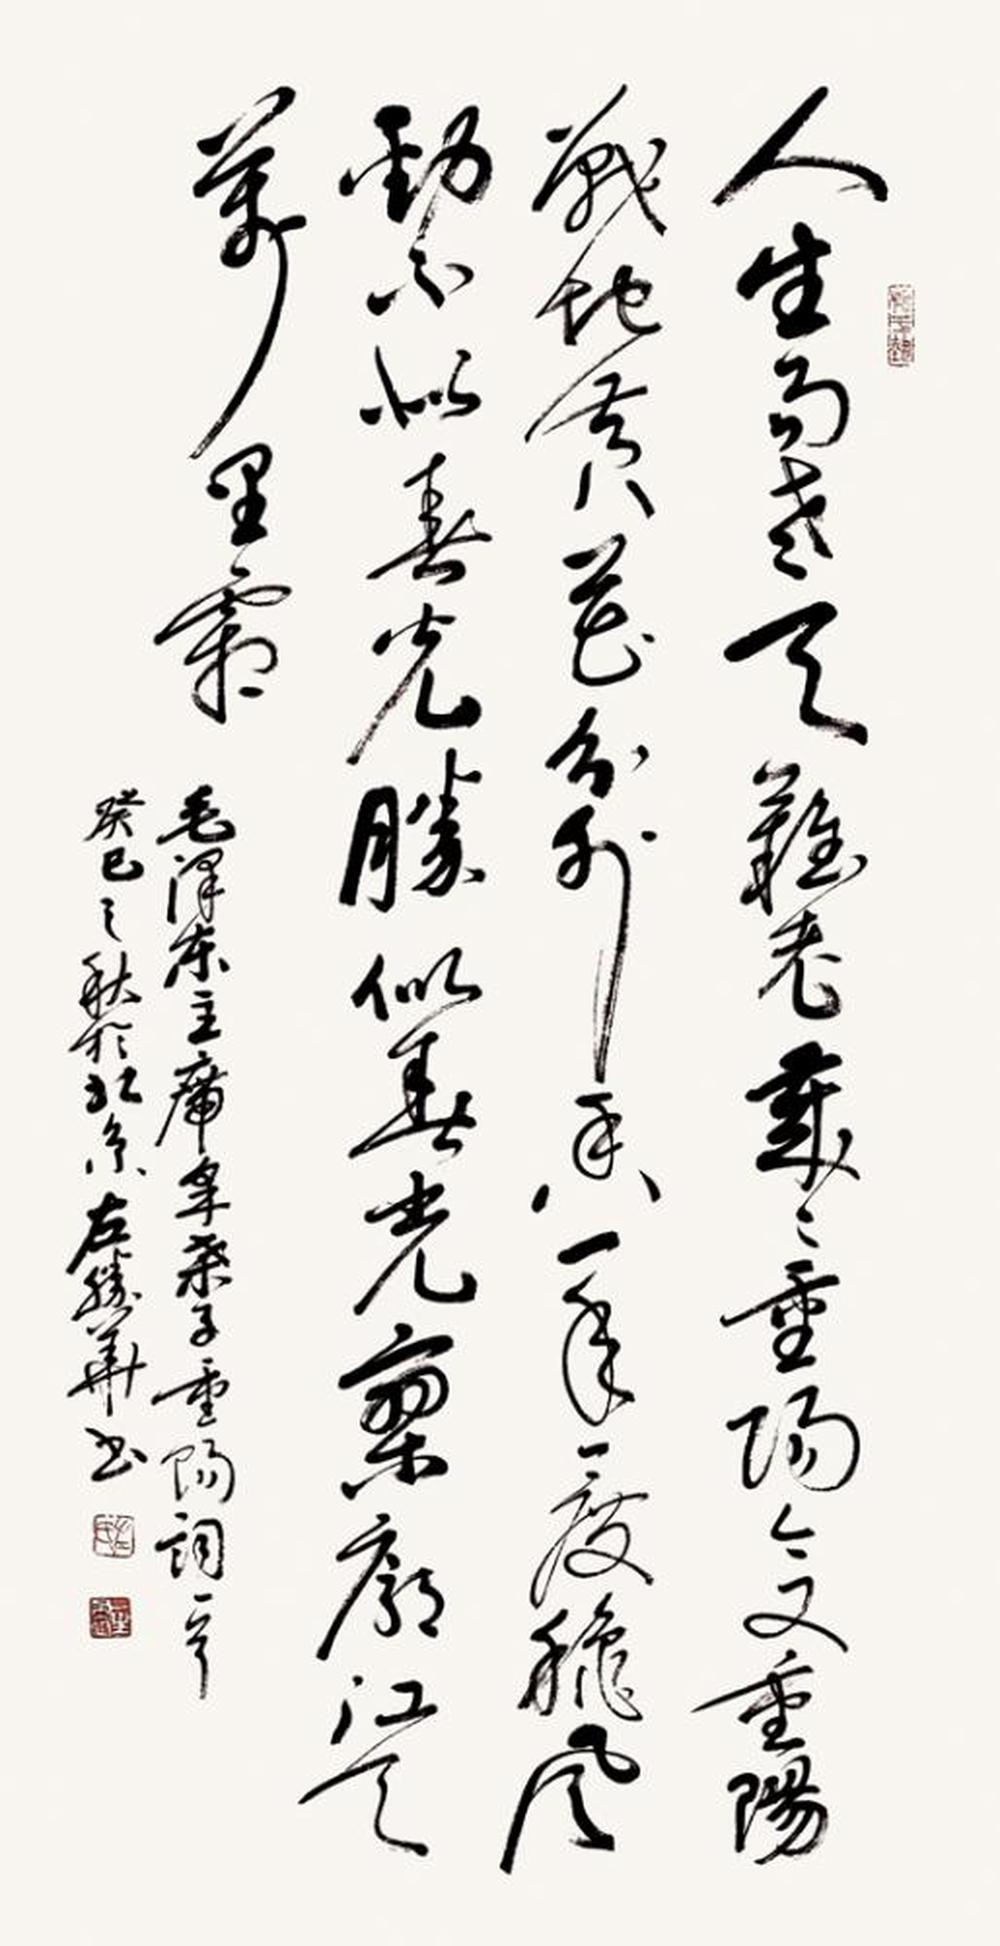 人生易老天難老歲〻重陽今又重陽
戰地黃花分外香一年一度龝風
勁不似春光勝似春光寥廓江天
萬里霜
毛泽东主席采桑子重陽詞一首
癸巳之秋於北京左勝華书